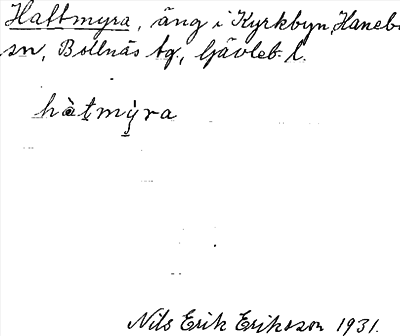 Hattmyra, äng i Kyrkbyn, Haneb
sn, Bollnäs tg., Gävleb. l.
hàtmỳra
Nils Erik Eriksson 1931.